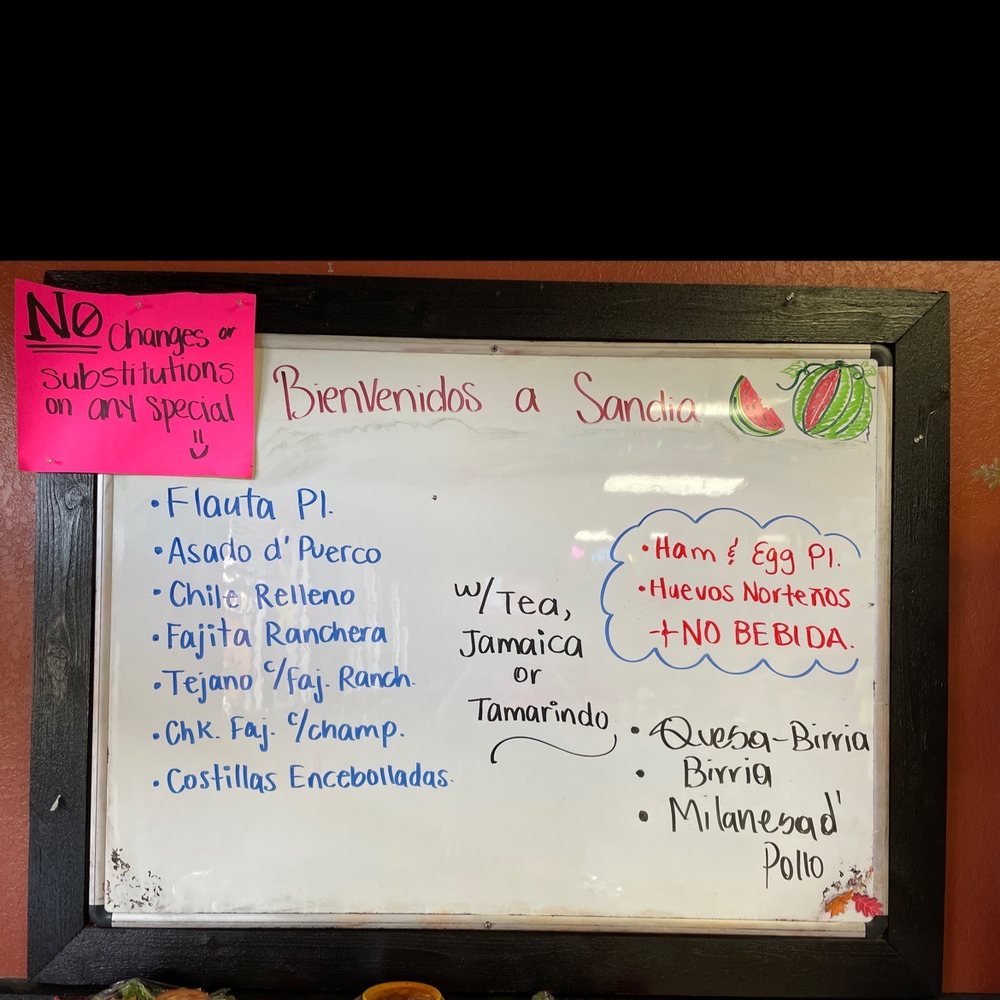 NO Changes or
substitutions
on any special
Bienvenidos a Sandia
• Flauta Pl.
• Asado d' Puerco
• Chile Relleno
• Fajita Ranchera
• Tejano c/faj. Ranch.
• Chk. Faj. c/champ.
• Costillas Encebolladas.
w/Tea,
Jamaica
or
Tamarindo
• Ham & Egg Pl.
• Huevos Norteños
→NO BEBIDA.
• Quesa-Birria
• Birria
• Milanesa d'
Pollo